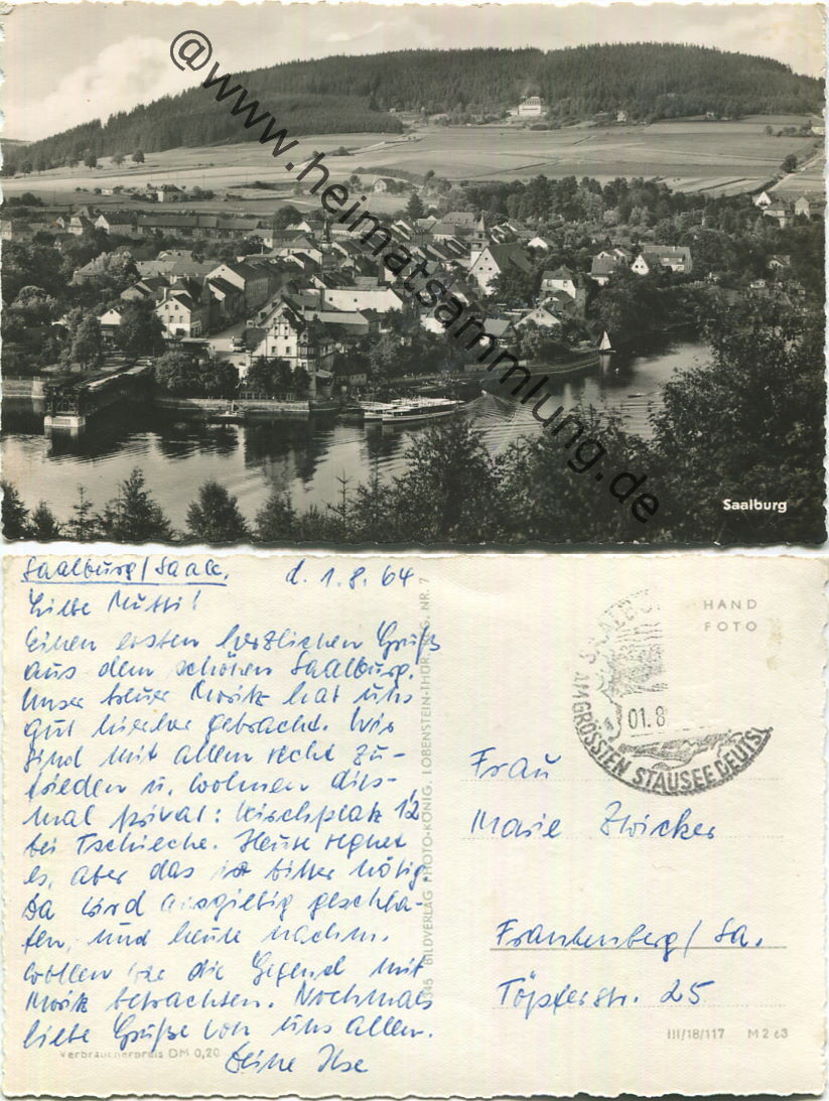 @www.heimatsammlung.de
Saalburg
Saalburg/Saale,
d. 1.8.64
Liebe Mutti!
Einen ersten herzlichen Gruß
aus dem schönen Saalburg.
Unser treuer Moritz hat uns
gut hierher gebracht. Wir
sind mit allem recht zu-
frieden u. wohnen dies-
mal privat: Kirchplatz 12
bei Tschieche. Heute regnet
es, aber das ist bitter nötig.
Da wird ausgiebig geschla-
fen, und heute nachm.
wollen wir die Gegend mit
Moritz betrachten. Nochmals
liebe Grüße von uns allen.
Deine Ilse
Verbraucherpreis DM 0,20
BILDVERLAG PHOTO-KÖNIG, LOBENSTEIN-THÜR. REG. NR. 7
HAND
FOTO
01.8
AM GRÖSSTEN STAUSEE DEUTS
Frau
Marie Zwicker
Frankenberg/Sa.
Töpferstr. 25
III/18/117 M 2 63